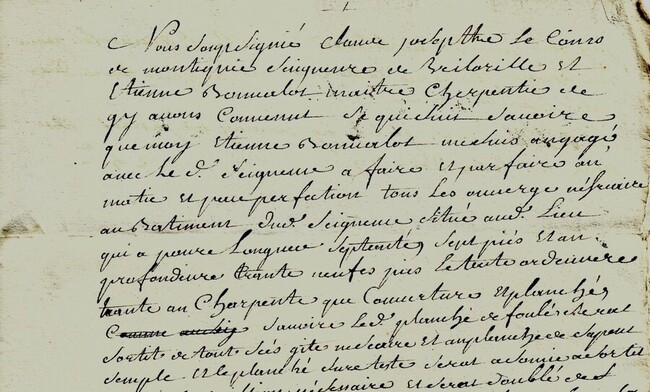 Nous soupsignié claude josepthe Le Cours
de montignie Seigneure de Et
Etienne Bonvalot maitre Charpentie de
gy avons Convenut Se qui Suit Savoire
que moy Etienne Bonvalot me suis angagé
avec Le d. Seigneure a faire Et par faire an
matie et perfection tous Les ouvrage
au Batiment du d. Seigneure Situé aud. Lieu
qui a poure Longueure Septente Sept piés Et an
profondeure trante neufes piés
tant au Charpente que Couverture Et planché
Comme aussy Savoire Led. planché de foulé Serat
Sortit de tout Sés gite et an planche de
Semple Et Le planché Sure teste Serat
nécessaire et Serat doublé de